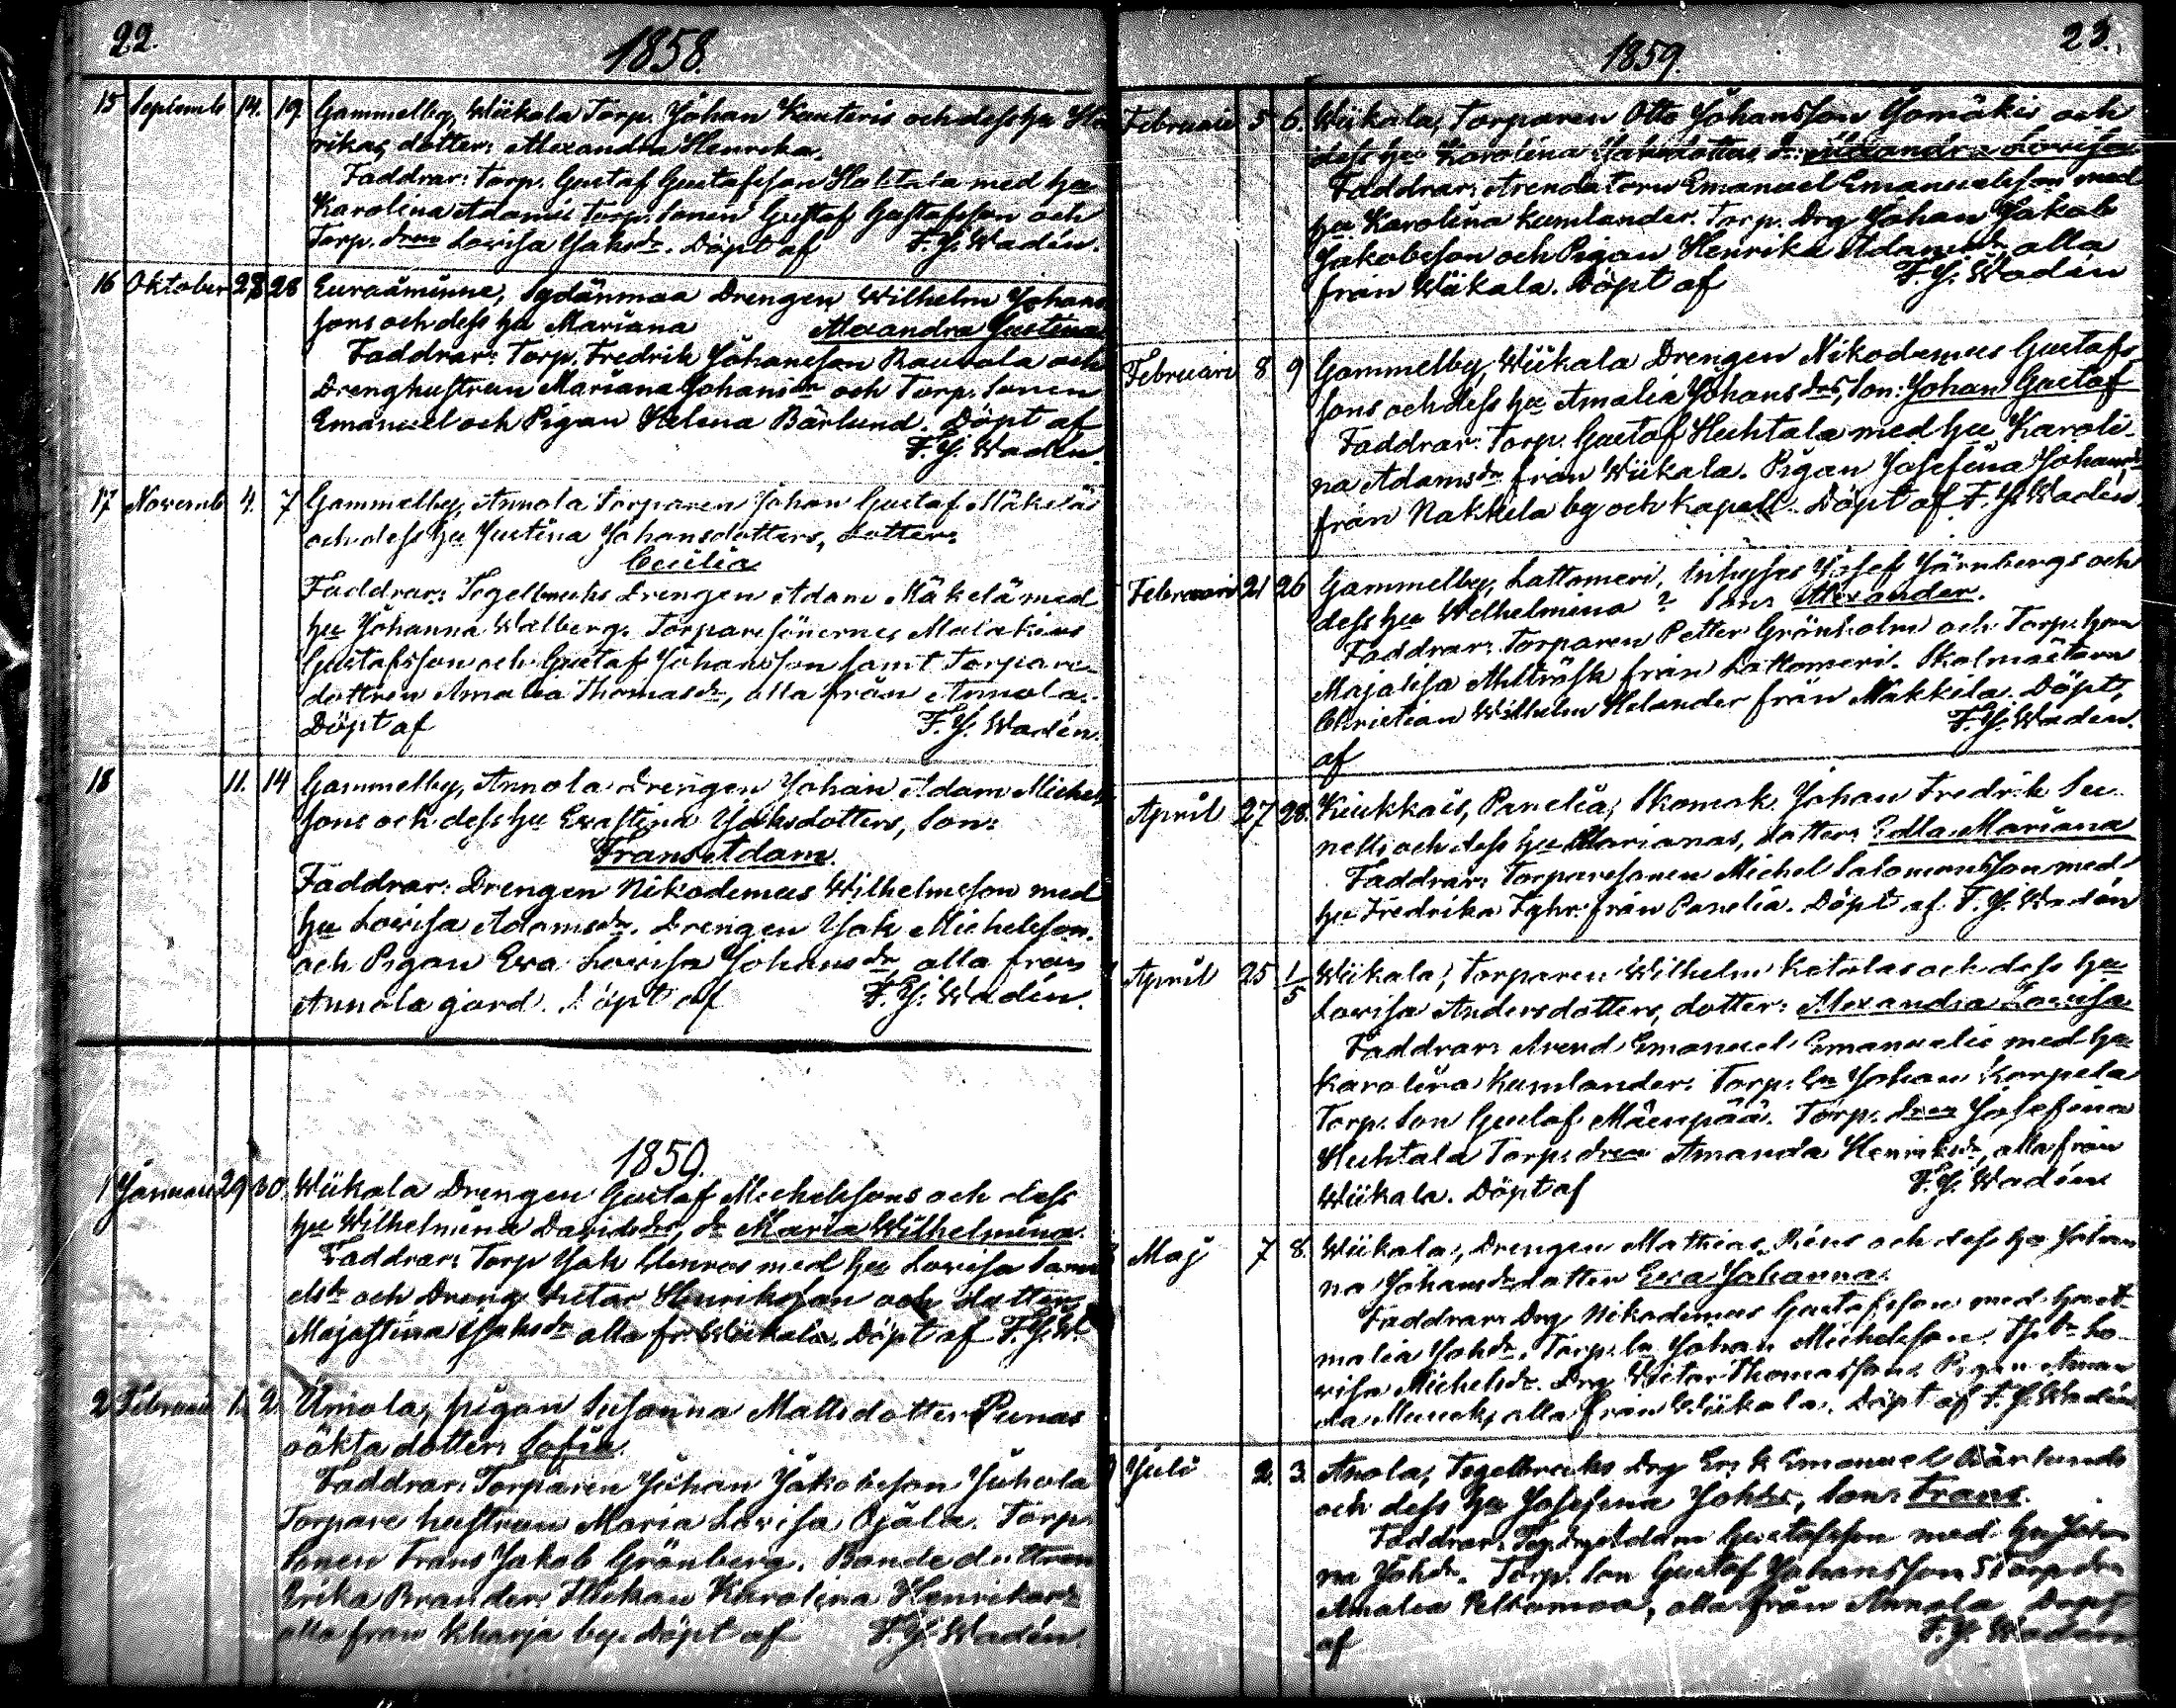 22.
1858.
15 Septemb 14. 19. Gammelby, Wiikala Torp. Johan Kauteris och dess hu Hen
rikas, dotter: Alexandra Henrika.
Faddrar: Torp. Gustaf Gustafsson Huhtala med hu
Karolina Adamsd. Torp. Sonen Gustaf Gustafsson och
Torp. dren Lovisa Jaksdr. Döpt af F. J. Wadén.
16 Oktober 27 28 Euraåminne, Sydänmaa Drengen Wilhelm Johans
sons och dess hu Mariana Alexandra Justina
Faddrar: Torp. Fredrik Johansson Rauvola och
Drenghustrun Mariana Johansdr och Torp. Sonen
Emanuel och Pigan Helena Bärlund. Döpt af
F. J. Wadén.
17 Novemb 4. 7 Gammelby, Annola Torparen Johan Gustaf Mäkelä
och dess hu Justina Johansdotters, Dotter:
Cecilia
Faddrar: Tegelbruks Drengen Adam Mäkelä med
hu Johanna Walberg. Torparesönerne Malakias
Gustafsson och Gustaf Johansson samt Torpare
dottren Amalia Thomasdr, alla från Annola.
Döpt af F. J. Wadén.
18 11. 14 Gammelby, Annola Drengen Johan Adam Michels
sons och dess hu Evastina Jaksdotters, Son:
Frans Adam.
Faddrar: Drengen Nikodemus Wilhelmsson med
hu Lovisa Adamsdr. Drengen Jak Michelsson.
och Pigan Eva Lovisa Johansdr, alla från
Annola gård. Döpt af F. J. Wadén.
1859.
1 Januari 29 30. Wiikala Drengen Gustaf Michelssons och dess
hu Wilhelmina Davidsdrs, dr Maria Wilhelmina.
Faddrar: Torp Jak Henros med hu Lovisa Samu
elsdr och Dreng Victor Henriksson och dottren
Majastina Jaksdr alla fr. Wiikala. Döpt af F. J. W.
2 Februari 1. 2. Uniola, pigan Susanna Mattsdotter Punas
oäkta dotter: Sofia.
Faddrar: Torparen Johan Jakobsson Juhola
Torpare hustrun Maria Lovisa Ojala. Torp.
Sonen Frans Jakob Grönberg. Bonde dottren
Erika Brander. Flickan Karolina Henriksdr
alla från Kharja by. Döpt af F. J. Wadén.
23.
1859.
Februari 5 6. Wiikala, Torparen Otto Johansson Jomäkis och
dess hu Karolina Jaksdotters, dr: Alexandra Lovisa
Faddrar: Arendatorn Emanuel Emanuelsson med
hu Karolina Kumlander. Torp. Drg Johan Jakob
Jakobsson och Pigan Henrika Adamsdr alla
från Wiikala. Döpt af F. J. Wadén
Februari 8 9 Gammelby, Wiikala Drengen Nikodemus Gustafs
sons och dess hu Amalia Johansdrs, Son: Johan Gustaf
Faddrar: Torp. Gustaf Huhtala med hu Karoli
na Adamsdr från Wiikala. Pigan Josefina Johansdr
från Nakkila by och Kapell. Döpt af F. J. Wadén.
Februari 21 26 Gammelby, Lattomeri, Inhyses Josef Järnbergs och
dess hu Wilhelmina ? Son: Alexander.
Faddrar: Torparen Petter Grönholm och Torp. hun
Majalisa Ahlträsk från Lattomeri. Skolmästarn
Christian Wilhelm Helander från Nakkila. Döpt,
af F. J. Wadén.
April 27 28. Kiukkais, Panelia, Skomak. Johan Fredrik Su
nells och dess hu Marianas, dotter: Edla Mariana
Faddrar: Torparesonen Michel Salomonsson med
hu Fredrika Fghr. från Panelia. Döpt af F. J. Wadén
April 25 1/5 Wiikala, Torparen Wilhelm Ketolas och dess hu
Lovisa Andersdotters, dotter: Alexandra Lovisa
Faddrar: Arend Emanuel Emanuelis med hu
Karolina Kumlander. Torp. Sn Johan Korpela
Torp. Son Gustaf Mäenpää. Torp. dren Josefina
Huhtala Torp. dren Amanda Henriksdr, alla från
Wiikala. Döpt af F. J. Wadén
Maj 7 8. Wiikala, Drengen Mathias Réns och dess hu Johan
na Johansdr dotter Eva Johanna.
Faddrar: Drg Nikodemus Gustafsson med hu A
malia Johdr. Torp. Sn Johan Michelsson. Lo
visa Michelsdr. Drg Victor Thomasson Pigan Aman
da Munck, alla från Wiikala. Döpt af F. J. Wadén
Juli 2. 3. Anola, Tegelbruks Drg Erik Emanuel Bärlunds
och dess hu Josefina Johdrs, Son: Frans.
Faddrar: Teg. Drg Adam Gustafsson med hu Johan
na Johdr. Torp. Son Gustaf Johansson Torp. dr
Amalia Peltomaa, alla från Annola Döpt
af F. J. Wadén